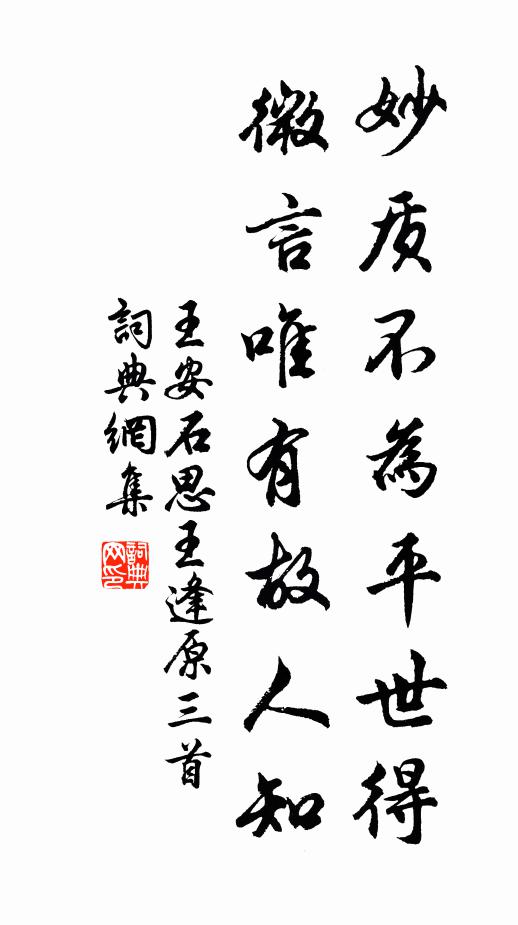 妙质不為平世得
微言唯有故人知
王安石思王逢原三首
詞典網集
詞典
网印